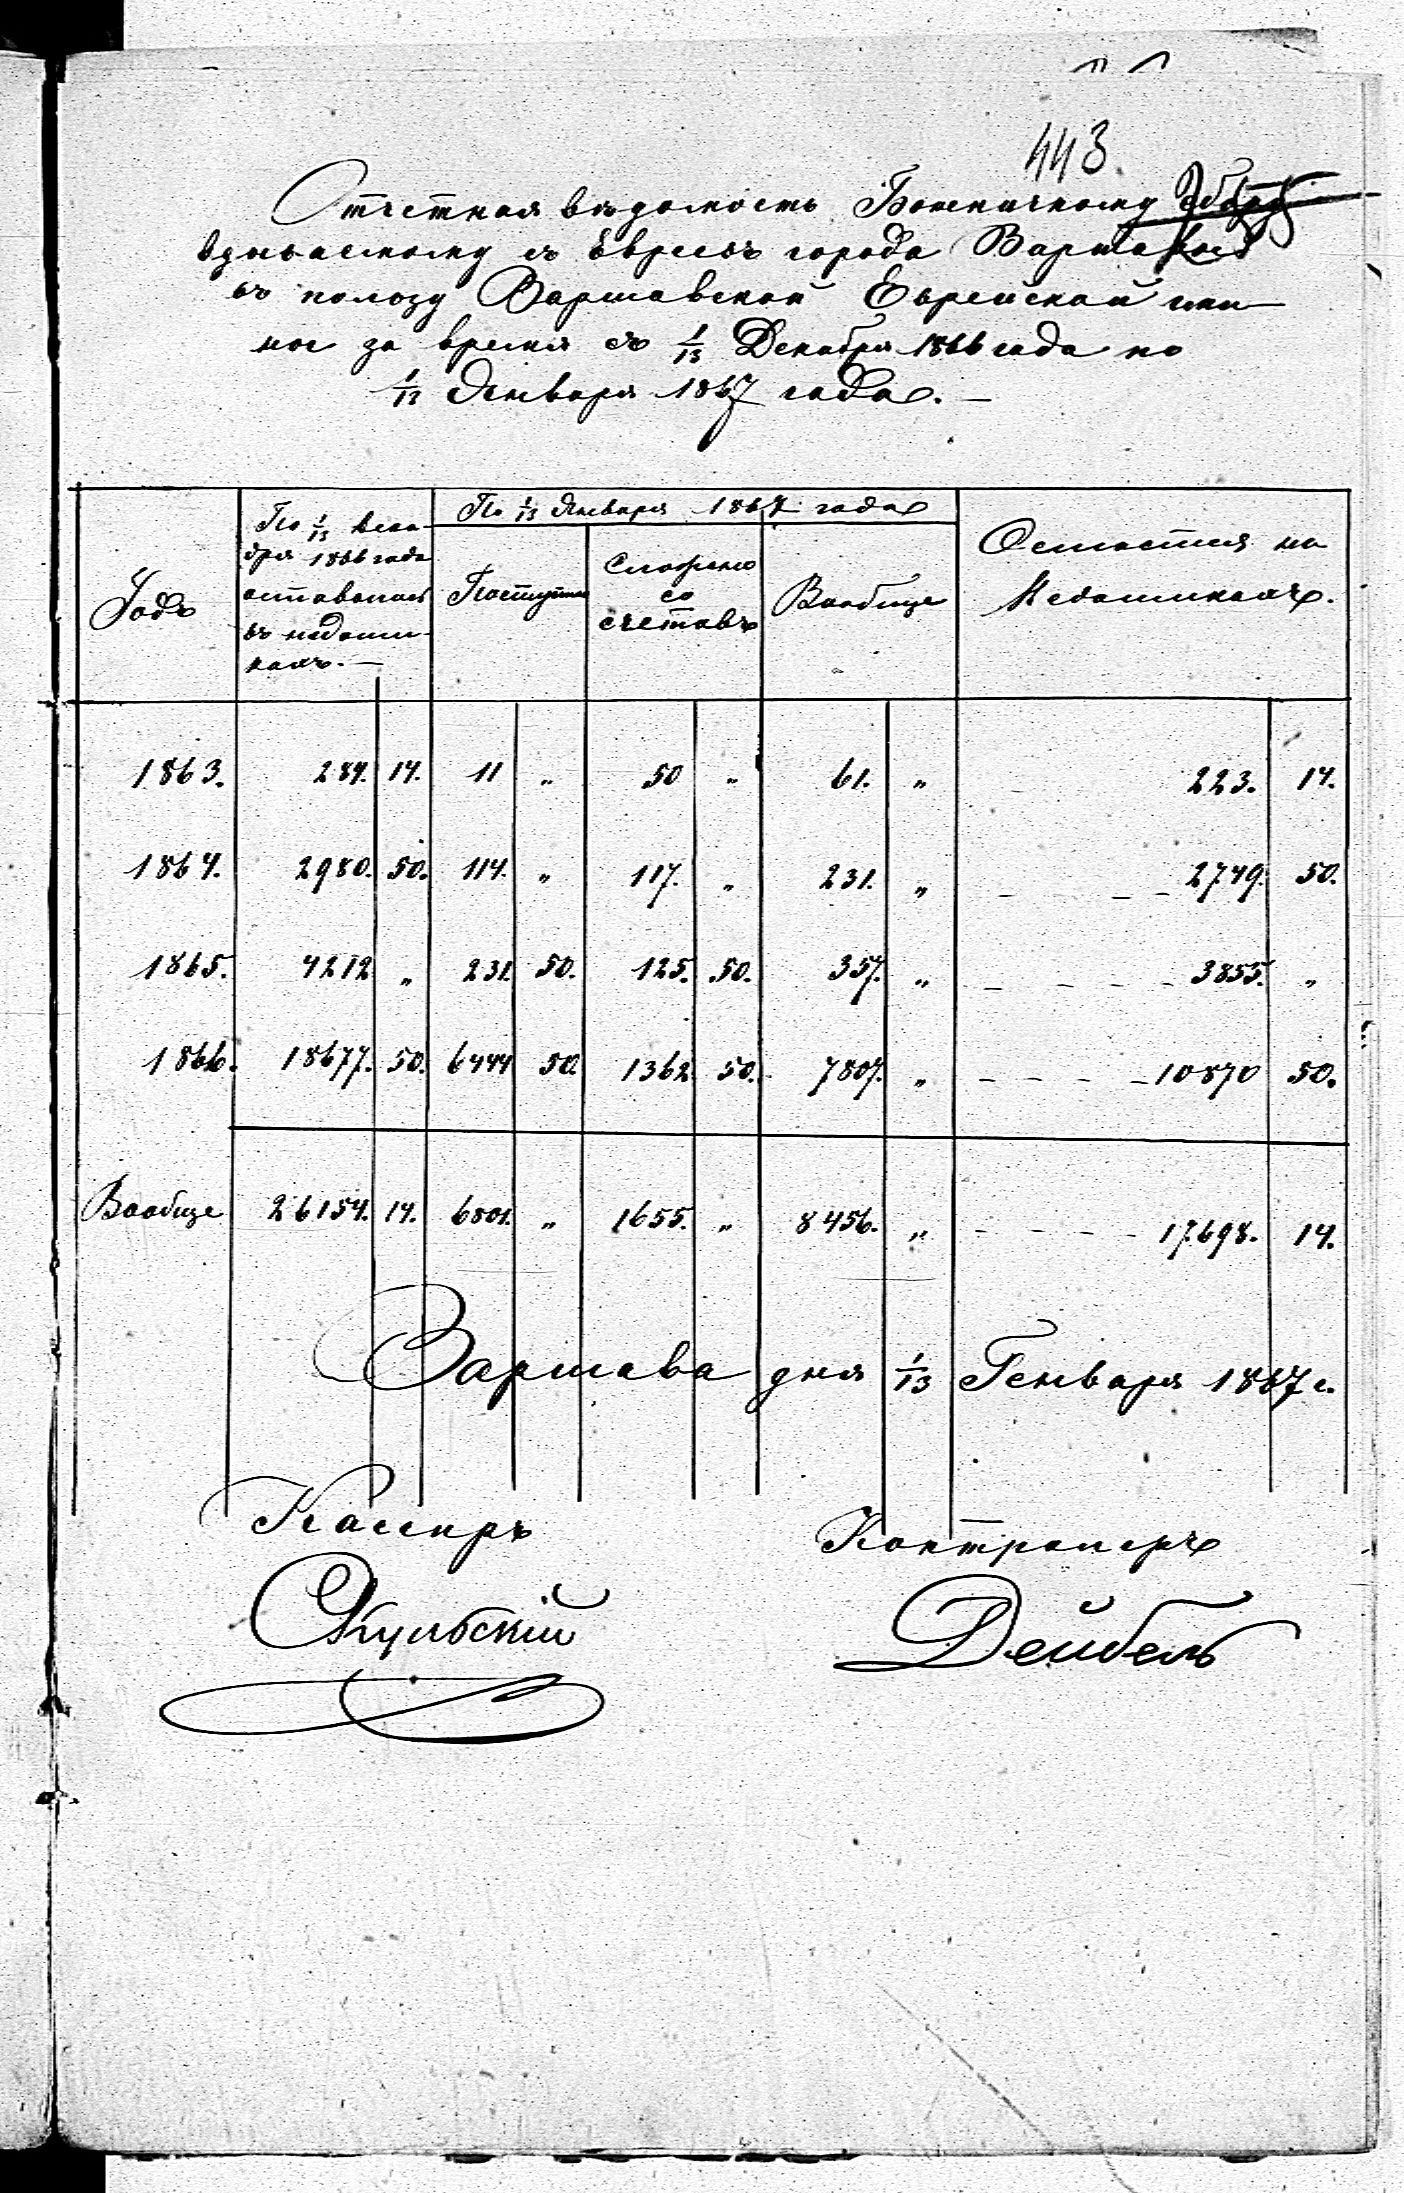 443.
Отчетная ведомость Боженичному Сбору
вдываемому съ Евреевъ города Варшавы
въ пользу Варшавской Еврейской гми-
ны за время съ 1/13 Декабря 1866 года по
1/13 Января 1867 года. —
Годъ
По 1/13 Дека-
бря 1866 года
оставалось
въ недоим-
кахъ. —
По 1/13 Января 1867 года
Поступило
Сложено
со
счетовъ
Вообще
Остается на
Недоимкахъ.
1863. 284. 14. 11 „ 50 „ 61. „ 223. 14.
1864. 2980. 50. 114. „ 117. „ 231. „ 2749. 50.
1865. 4212 „ 231. 50. 125. 50. 357. „ 3855. „
1866. 18677. 50. 6444 50. 1362 50. 7807. „ 10870 50.
Вообще 26154. 14. 6801. „ 1655. „ 8456. „ 17698. 14.
Варшава дня 1/13 Генваря 1867 г.
Кассиръ
Контролеръ
Скульскій
Дейбель